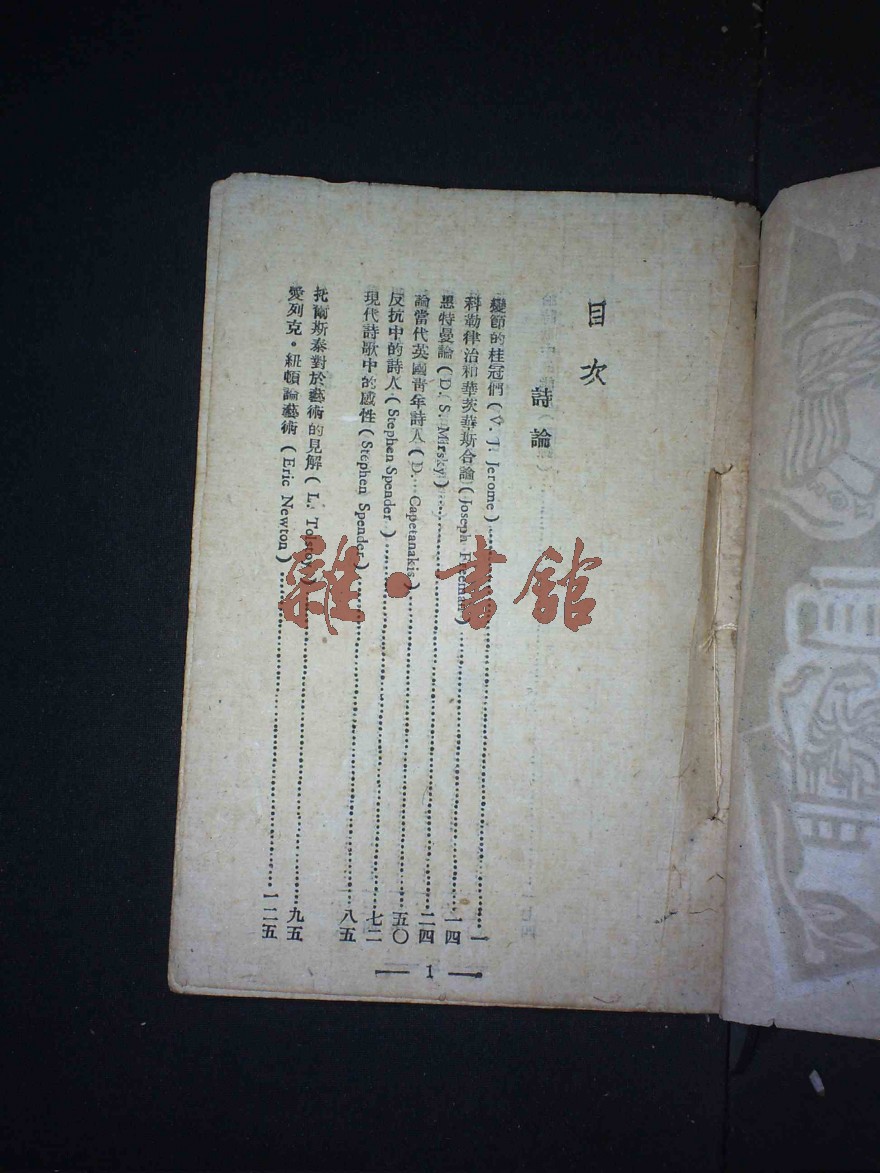 目次
詩論
變節的桂冠們(V. J. Jerome)……一
科勒律治和華茨華斯合論(Joseph Freeman)……一四
惠特曼論(D. S. Mirsky)……二四
論當代英國靑年詩人(D. Capetanakis)……五〇
反抗中的詩人(Stephen Spender)……七二
現代詩歌中的感性(Stephen Spender)……八五
托爾斯泰對於藝術的見解(L. Tolstoy)……九五
愛列克·紐頓論藝術(Eric Newton)……一二五
— 1 —
雜·書館